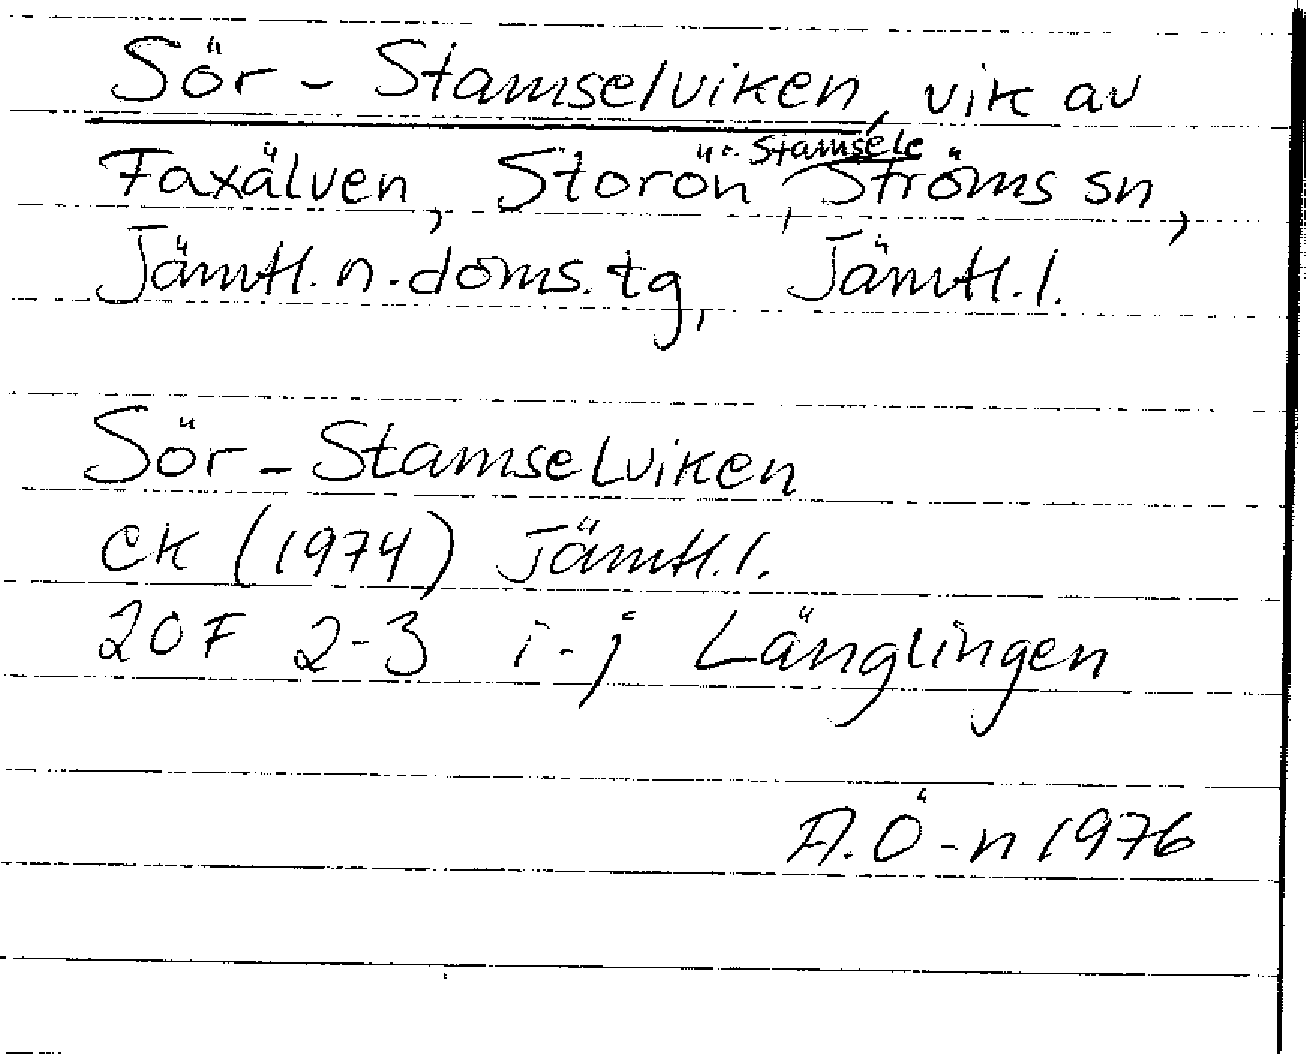 Sör-Stamselviken, vik av
Faxälven, Storön, Stamsele Ströms sn,
Jämtl. n. doms. tg, Jämtl. l.
Sör-Stamselviken
EK (1974) Jämtl. l.
20F 2-3 i-j Länglingen
A.Ö-n 1976